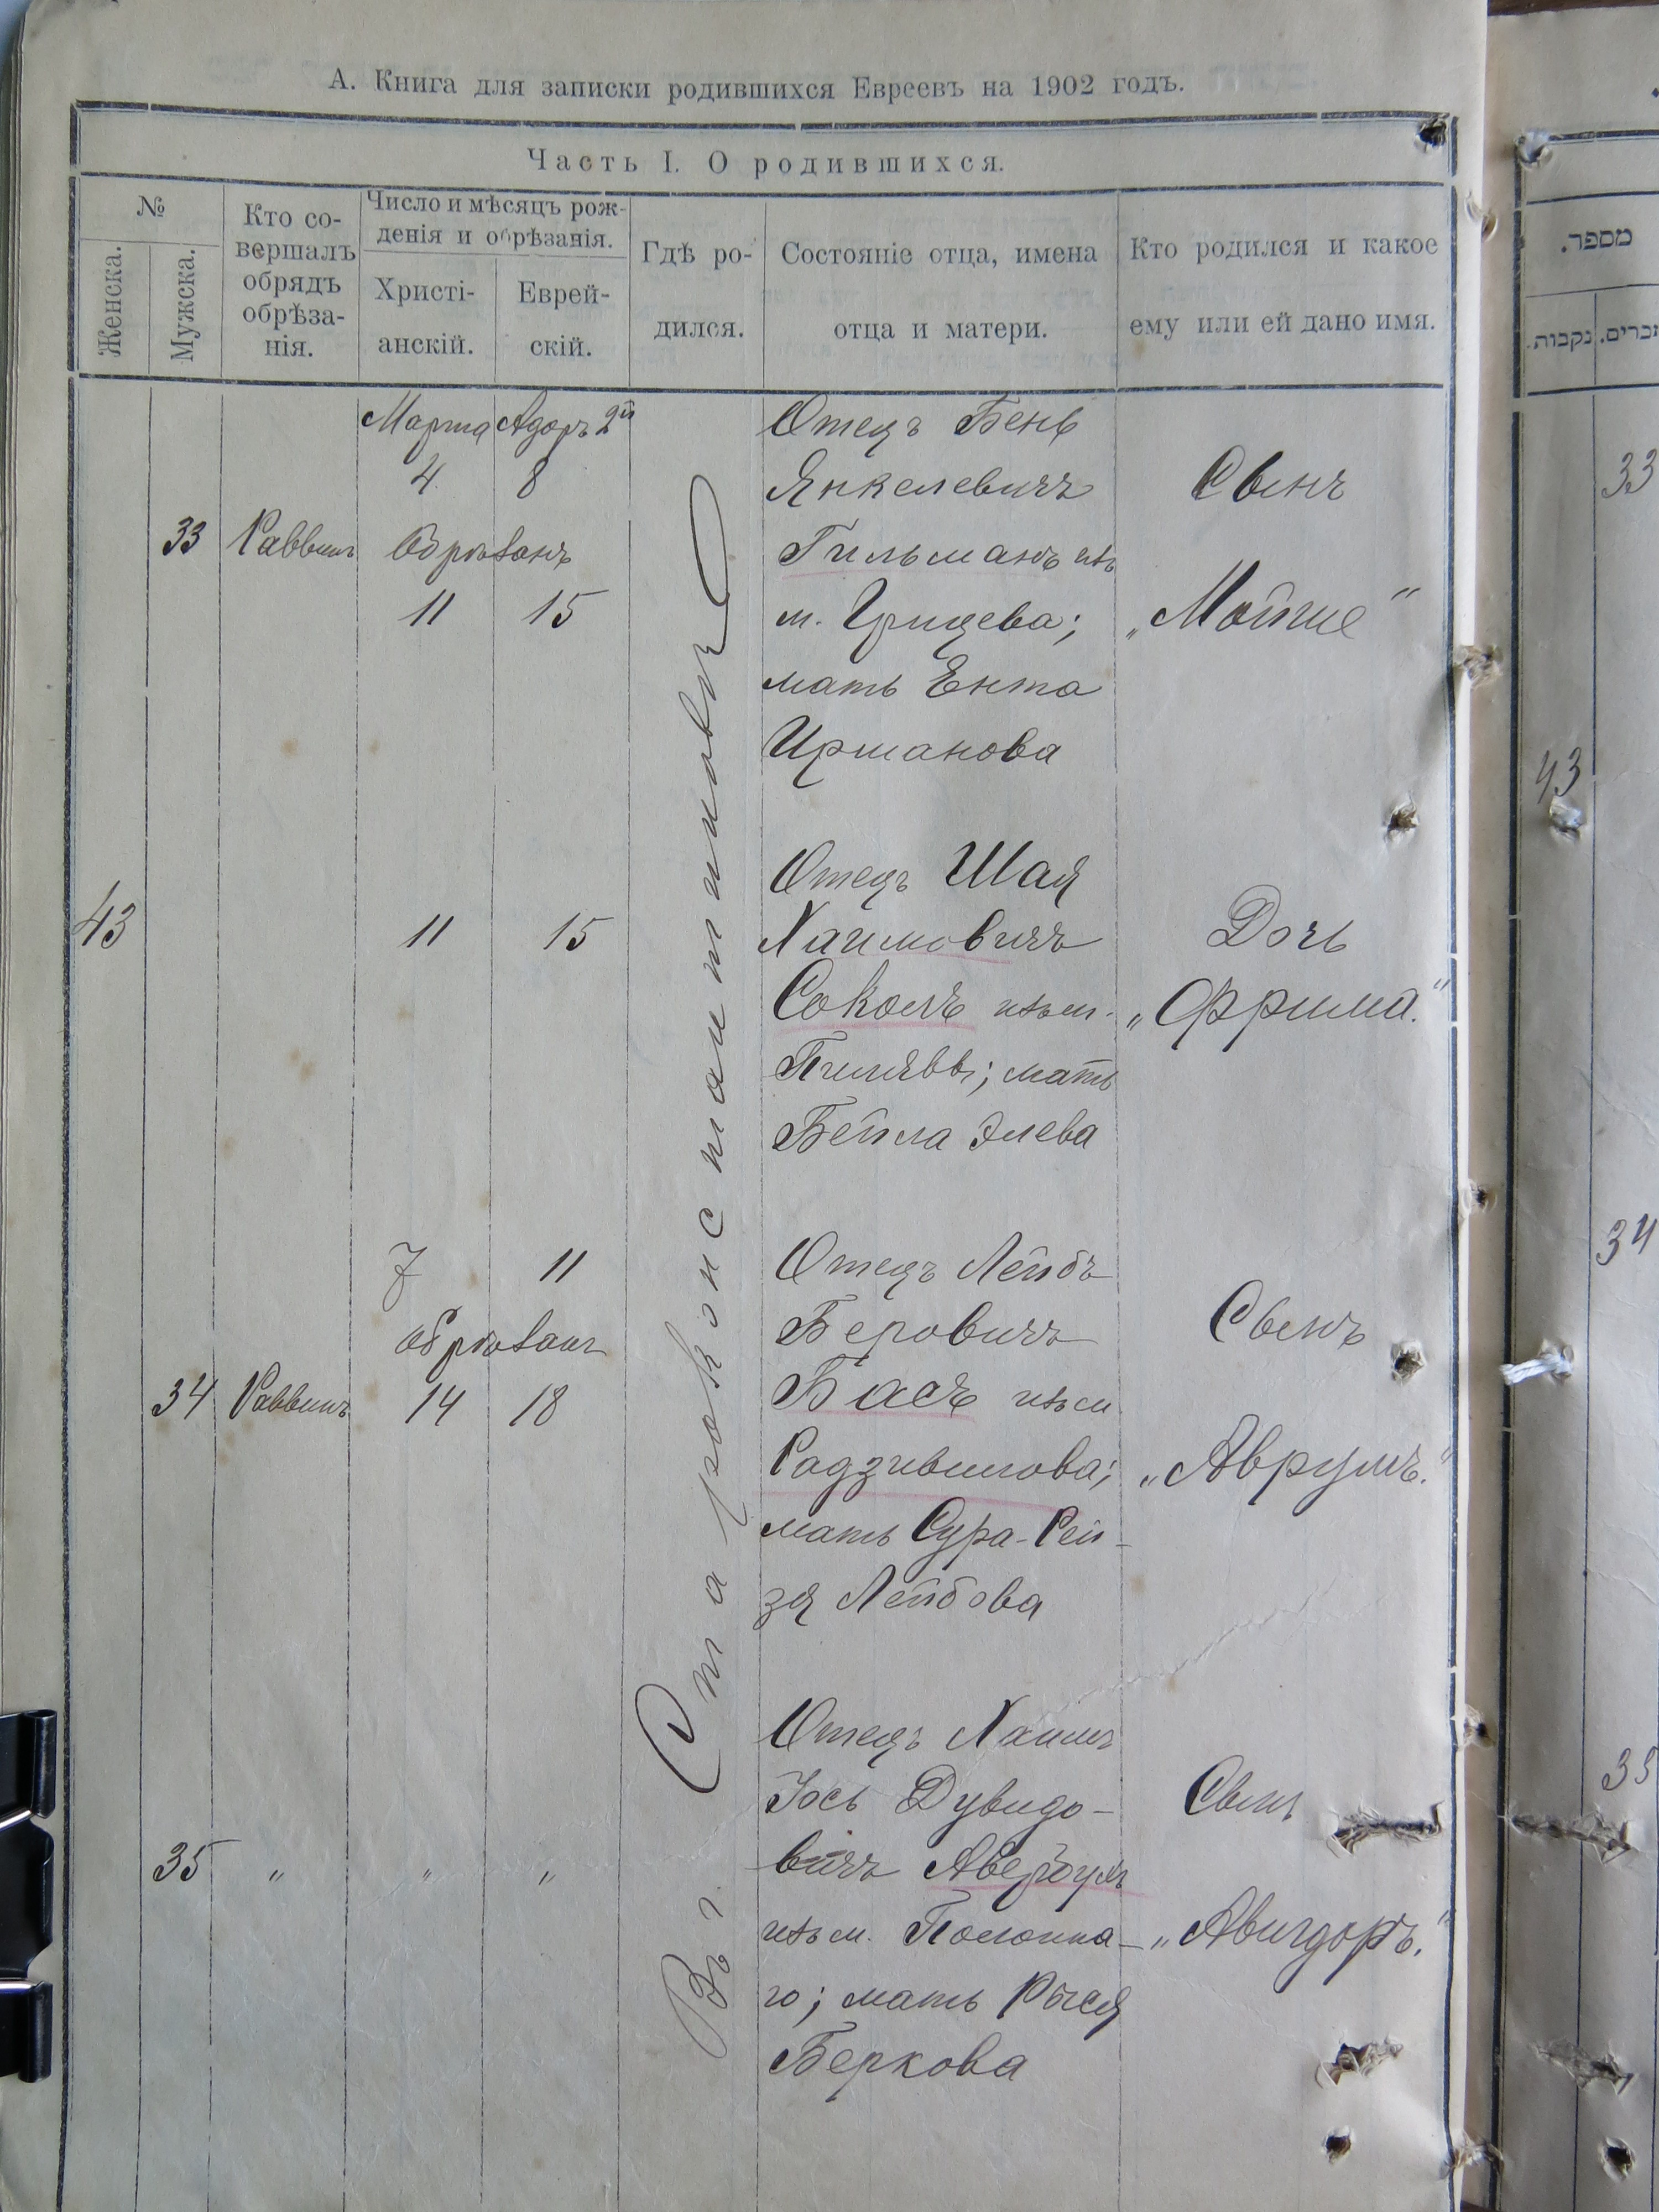 А. Книга для записки родившихся Евреевъ на 1902 годъ.
Часть I. О родившихся.
№
Женска.
Мужска.
Кто со-
вершалъ
обрядъ
обрѣза-
нія.
Число и мѣсяцъ рож-
денія и обрѣзанія.
Христі-
анскій.
Еврей-
скій.
Гдѣ ро-
дился.
Состояніе отца, имена
отца и матери.
Кто родился и какое
ему или ей дано имя.
Въ г. Старoконстантиновѣ
33
Раввинъ
Марта Адоръ 2й
4 8
Обрѣзанъ
11 15
Отецъ Бень
Янкелевичъ
Гильманъ изъ
м. Грицева;
мать Ента
Иршанова
Сынъ
„Мойше“
43
11 15
Отецъ Шая
Хаимовичъ
Соколъ изъ м.
Пилявы; мать
Бейла Элева
Дочь
„Фрима.“
34
Раввинъ
7 11
обрѣзанъ
14 18
Отецъ Лейбъ
Беровичъ
Басъ изъ м
Радзивилова;
мать Сура-Рей-
зя Лейбова
Сынъ
„Аврумъ.“
35
„ „ „
Отецъ Хаимъ
Іось Дувидо-
вичъ Авербухъ
изъ м. Полонна-
го; мать Рыся
Беркова
Сынъ
„Авигдоръ.“
מספר.
נקבות.
זכרים.
33
43
34
35